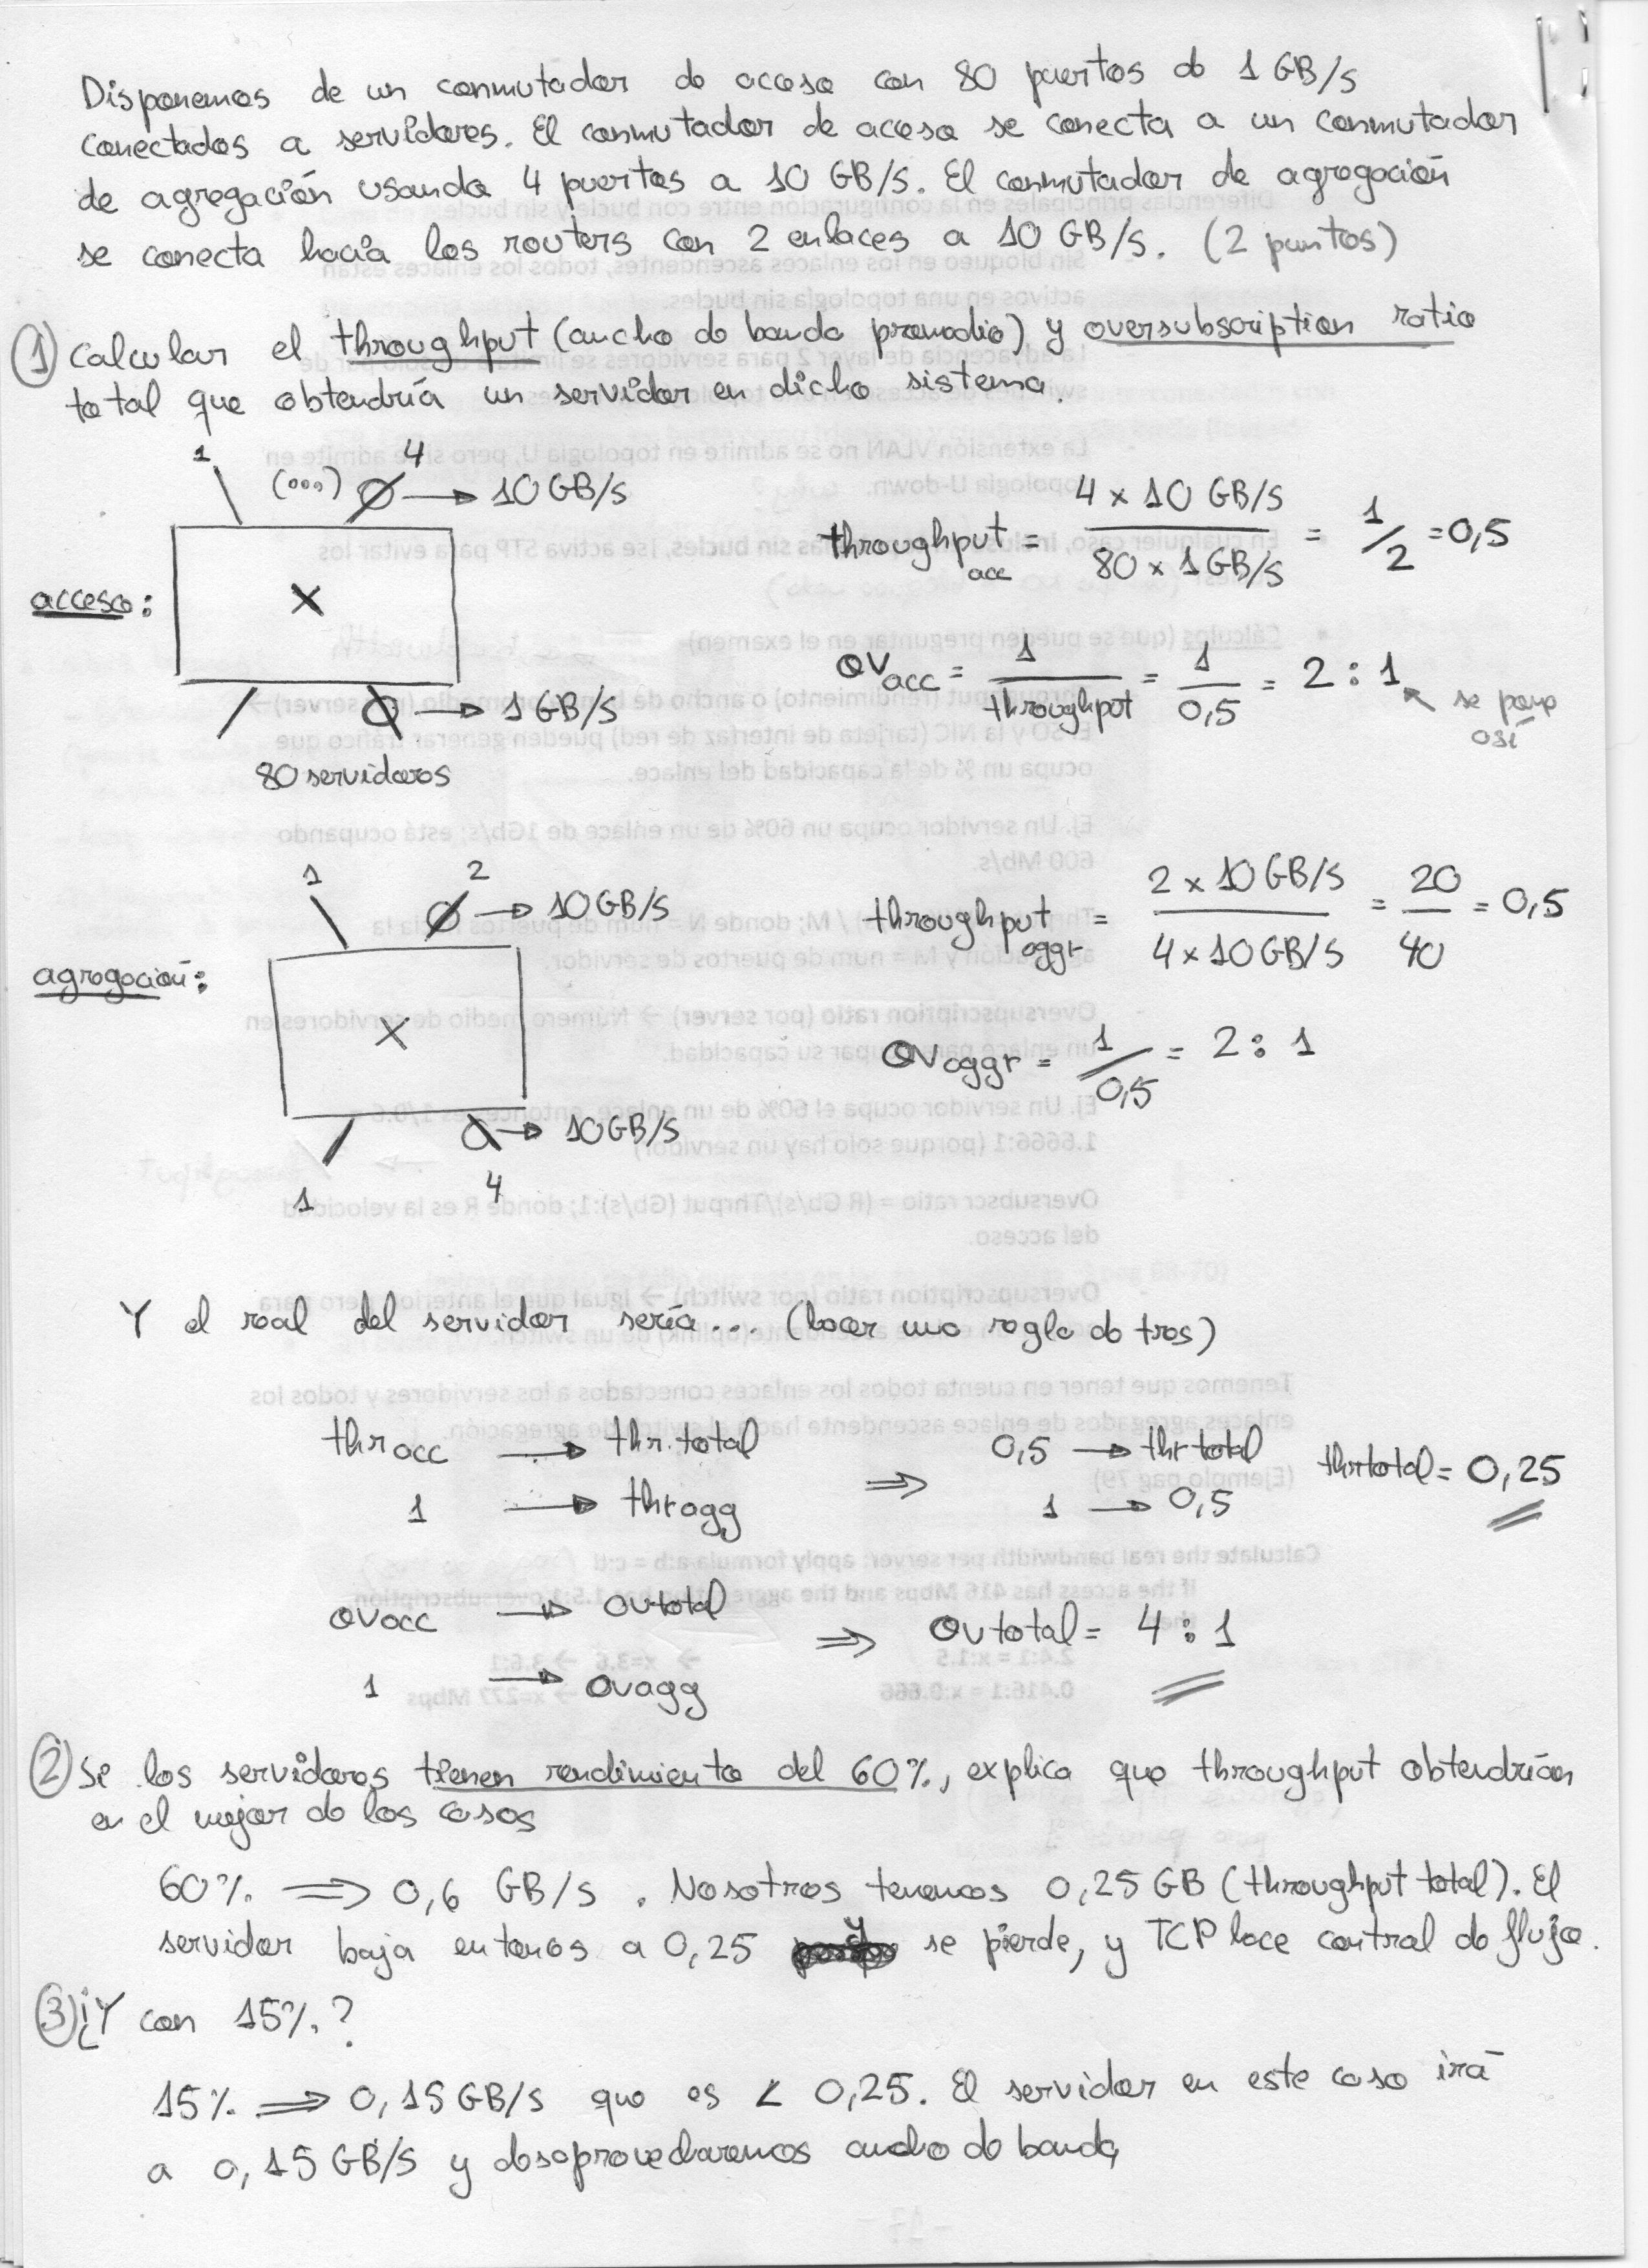 Disponemos de un conmutador de acceso con 80 puertos de 1 GB/s
conectados a servidores. El conmutador de acceso se conecta a un conmutador
de agregación usando 4 puertos a 10 GB/s. El conmutador de agregación
se conecta hacia los routers con 2 enlaces a 10 GB/s. (2 puntos)
① Calcular el throughput (ancho de banda promedio) y oversubscription ratio
total que obtendría un servidor en dicho sistema.
1 (...) 4 → 10 GB/s
throughput acc = 4 x 10 GB/s / 80 x 1 GB/s = 1/2 = 0,5
acceso: X
OV acc = 1 / throughput = 1 / 0,5 = 2 : 1 ← se pone
así
→ 1 GB/s
80 servidores
1 2 → 10 GB/s
throughput aggr = 2 x 10 GB/s / 4 x 10 GB/s = 20 / 40 = 0,5
agregación: X
OV aggr = 1 / 0,5 = 2 : 1
→ 10 GB/s
1 4
Y el real del servidor sería... (hacer una regla de tres)
thr acc → thr.total ⇒ 0,5 → thrtotal thrtotal = 0,25
1 → thragg 1 → 0,5
OVacc → OVtotal ⇒ OVtotal = 4 : 1
1 → OVagg
② Si los servidores tienen rendimiento del 60%, explica que throughput obtendrían
en el mejor de los casos
60% ⇒ 0,6 GB/s. Nosotros tenemos 0,25 GB (throughput total). El
servidor baja entonces a 0,25 y se pierde, y TCP hace control de flujo.
③ ¿Y con 15%?
15% ⇒ 0,15 GB/s que es < 0,25. El servidor en este caso irá
a 0,15 GB/s y desaprovecharemos ancho de banda